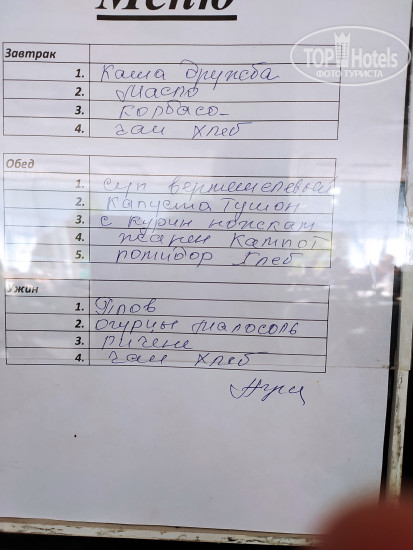 Меню
TOP Hotels
ФОТО ТУРИСТА
Завтрак
1. Каша дружба
2. Масло
3. Корбасо-
4. чаи хлеб
Обед
1. суп вермешелевый
2. Капуста тушон
3. с курин ножкам
4. жарен Кампот
5. помидор хлеб
Ужин
1. Плов
2. Огурцы малосоль
3. пичене
4. чаи хлеб